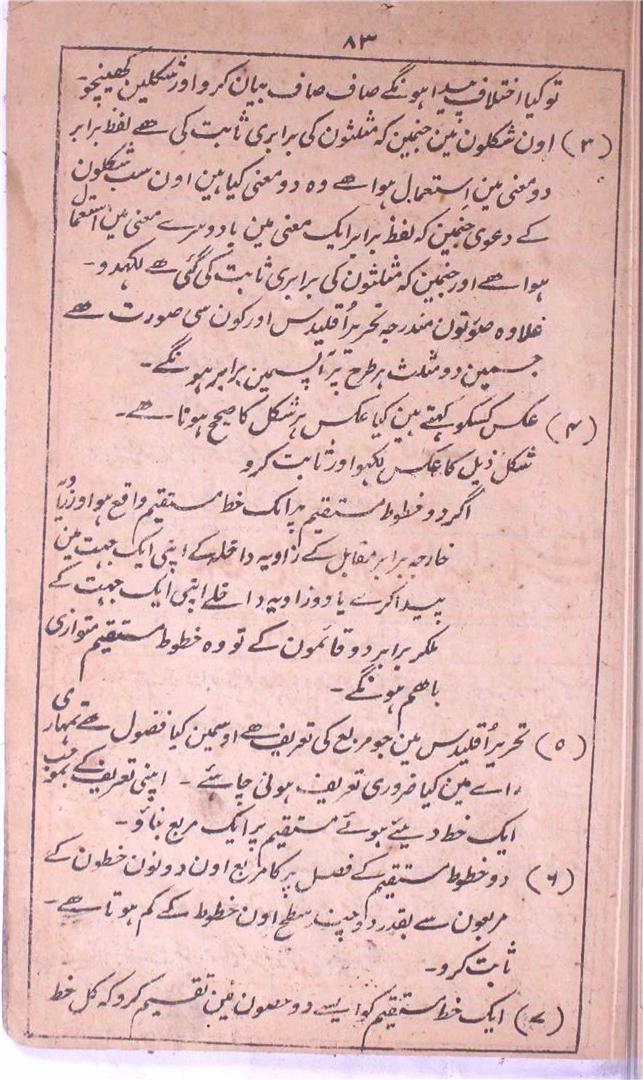 ۸۳
تو کیا اختلاف پیدا ہونگے صاف صاف بیان کرو اور شکلین کھینچو۔
(۳) اون شکلون مین جنمین کہ مثلثون کی برابری ثابت کی ھے لفظ برابر
دو معنی مین استعمال ہوا ھے وہ دو معنی کیا ہین اون سب شکلون
کے دعوی جنمین کہ لفظ برابر ایک معنی مین یا دوسرے معنی مین استعمال
ہوا ھے اور جنمین کہ مثلثون کی برابری ثابت کی گئی ھے لکھدو۔
علاوہ صورتون مندرجہ تحریر اُقلیدس اور کون سی صورت ھے
جسمین دو مثلث ہر طرح پر آپسمین برابر ہونگے۔
(۴) عکس کسکو کہتے ہین کیا عکس ہر شکل کا صحیح ہوتا ھے۔
شکل ذیل کا عکس لکھو اور ثابت کرو
اگر دو خطوط مستقیم پر ایک خط مستقیم واقع ہو اور زاویہ
خارجہ برابر مقابل کے زاویہ داخلہ کے اپنی ایک جہت مین
پیدا کرے یا دو زاویہ داخلے اپنی ایک جہت کے
ملکر برابر دو قائمون کے تو وہ خطوط مستقیم متوازی
باھم ہونگے۔
(۵) تحریر اُقلیدس مین جو مربع کی تعریف ھے اوسمین کیا فضول ھے تمہاری
راے مین کیا ضروری تعریف ہونی چاہئے ۔ اپنی تعریف کے بموجب
ایک خط دیئے ہوئے مستقیم پر ایک مربع بناؤ۔
(۶) دو خطوط مستقیم کے فصل پر کا مربع اون دونون خطون کے
مربعون سے بقدر دو چند سطح اون خطوط کے کم ہوتا ھے۔
ثابت کرو۔
(۷) ایک خط مستقیم کو ایسے دو حصون مین تقسیم کرو کہ کل خط